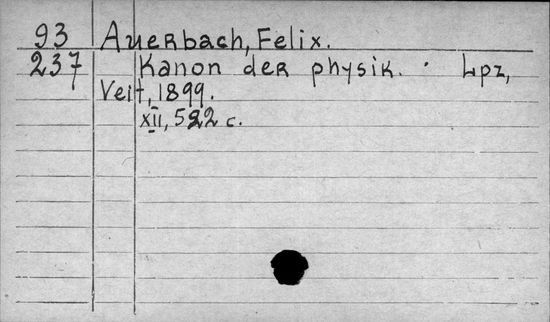 93 Auerbach, Felix.
237 Kanon der physik. Lpz,
Veit, 1899.
XII, 522 c.